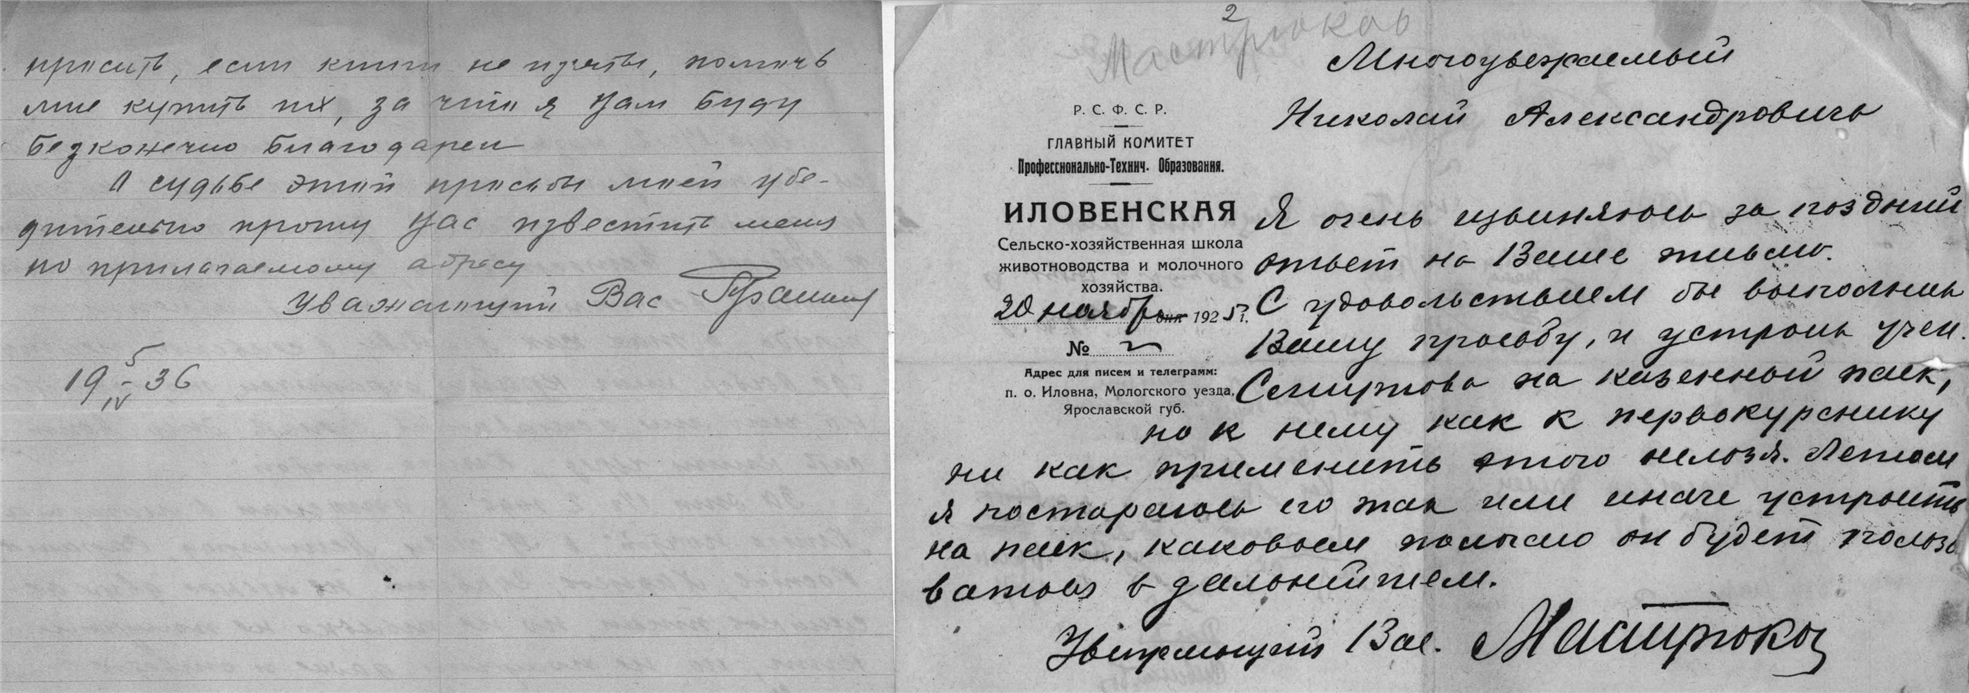 просить, если книги не изъяты, помочь
мне купить их, за что я Вам буду
безконечно благодарен
О судьбе этой просьбы моей убе-
дительно прошу Вас известить меня
по прилагаемому адресу
Уважающий Вас
19 5/IV 36
2
Мастрюков
Многоуважаемый
Николай Александровичь
Р. С. Ф. С. Р.
ГЛАВНЫЙ КОМИТЕТ
Профессионально-Технич. Образования.
ИЛОВЕНСКАЯ
Сельско-хозяйственная школа
животноводства и молочного
хозяйства.
20 ноября 1925 г.
№ 2
Адрес для писем и телеграмм:
п. о. Иловна, Мологского уезда,
Ярославской губ.
Я очень извиняюсь за поздний
ответ на Ваше письмо.
С удовольствием бы выполнил
Вашу просьбу, и устроил учен.
на казенный паек,
но к нему как к первокурснику
ни как применить этого нельзя. Летом
я постараюсь его так или иначе устроить
на паек, каковым он будет пользо
ваться в дальнейшем.
Уважающий Вас. Мастрюков